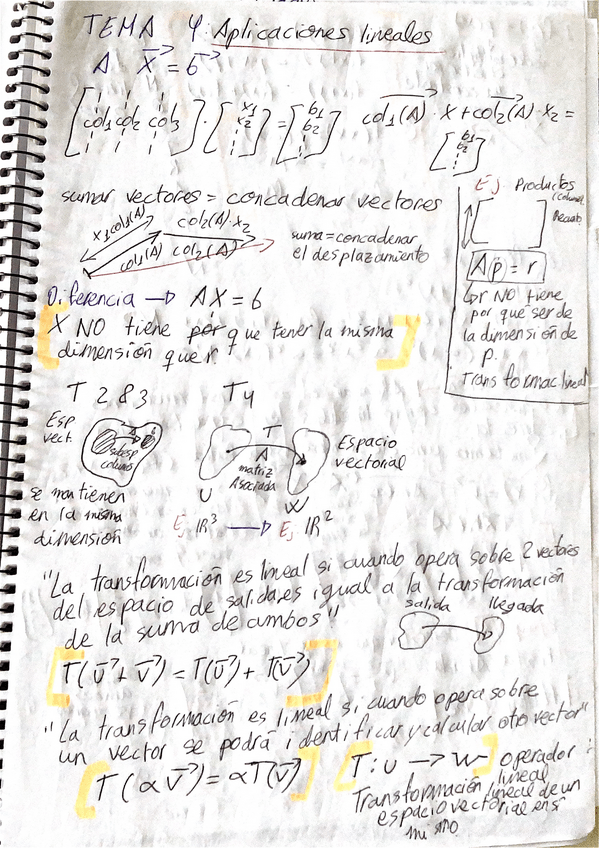 TEMA 4: Aplicaciones lineales
A X = b
[col1 col2 col3] · [x1 x2] = [b1 b2] col1(A) · X + col2(A) · x2 =
[b1 b2]
sumar vectores = concadenar vectores
x1 col1(A) col2(A) · x2
col1(A) col2(A)
suma = concadenar
el desplazamiento
Ej Productos
Ap = r
r NO tiene
por que ser de
la dimensión de
p.
Transformac. lineal
Diferencia → AX = b
X NO tiene por que tener la misma
dimensión que r.
T 2 & 3 T4
Esp
vect.
subesp
column
se mantienen
en la misma
dimensión
T
A
matriz
Asociada
U W
Espacio
vectorial
Ej IR³ → Ej IR²
"La transformación es lineal si cuando opera sobre 2 vectores
del espacio de salida es igual a la transformación
de la suma de ambos"
salida llegada
T(u + v) = T(u) + T(v)
"La transformación es lineal si cuando opera sobre
un vector se podrá identificar y calcular otro vector"
T(αv) = αT(v)
T: U → W operador:
Transformación lineal
lineal de un
espacio vectorial en sí
mismo